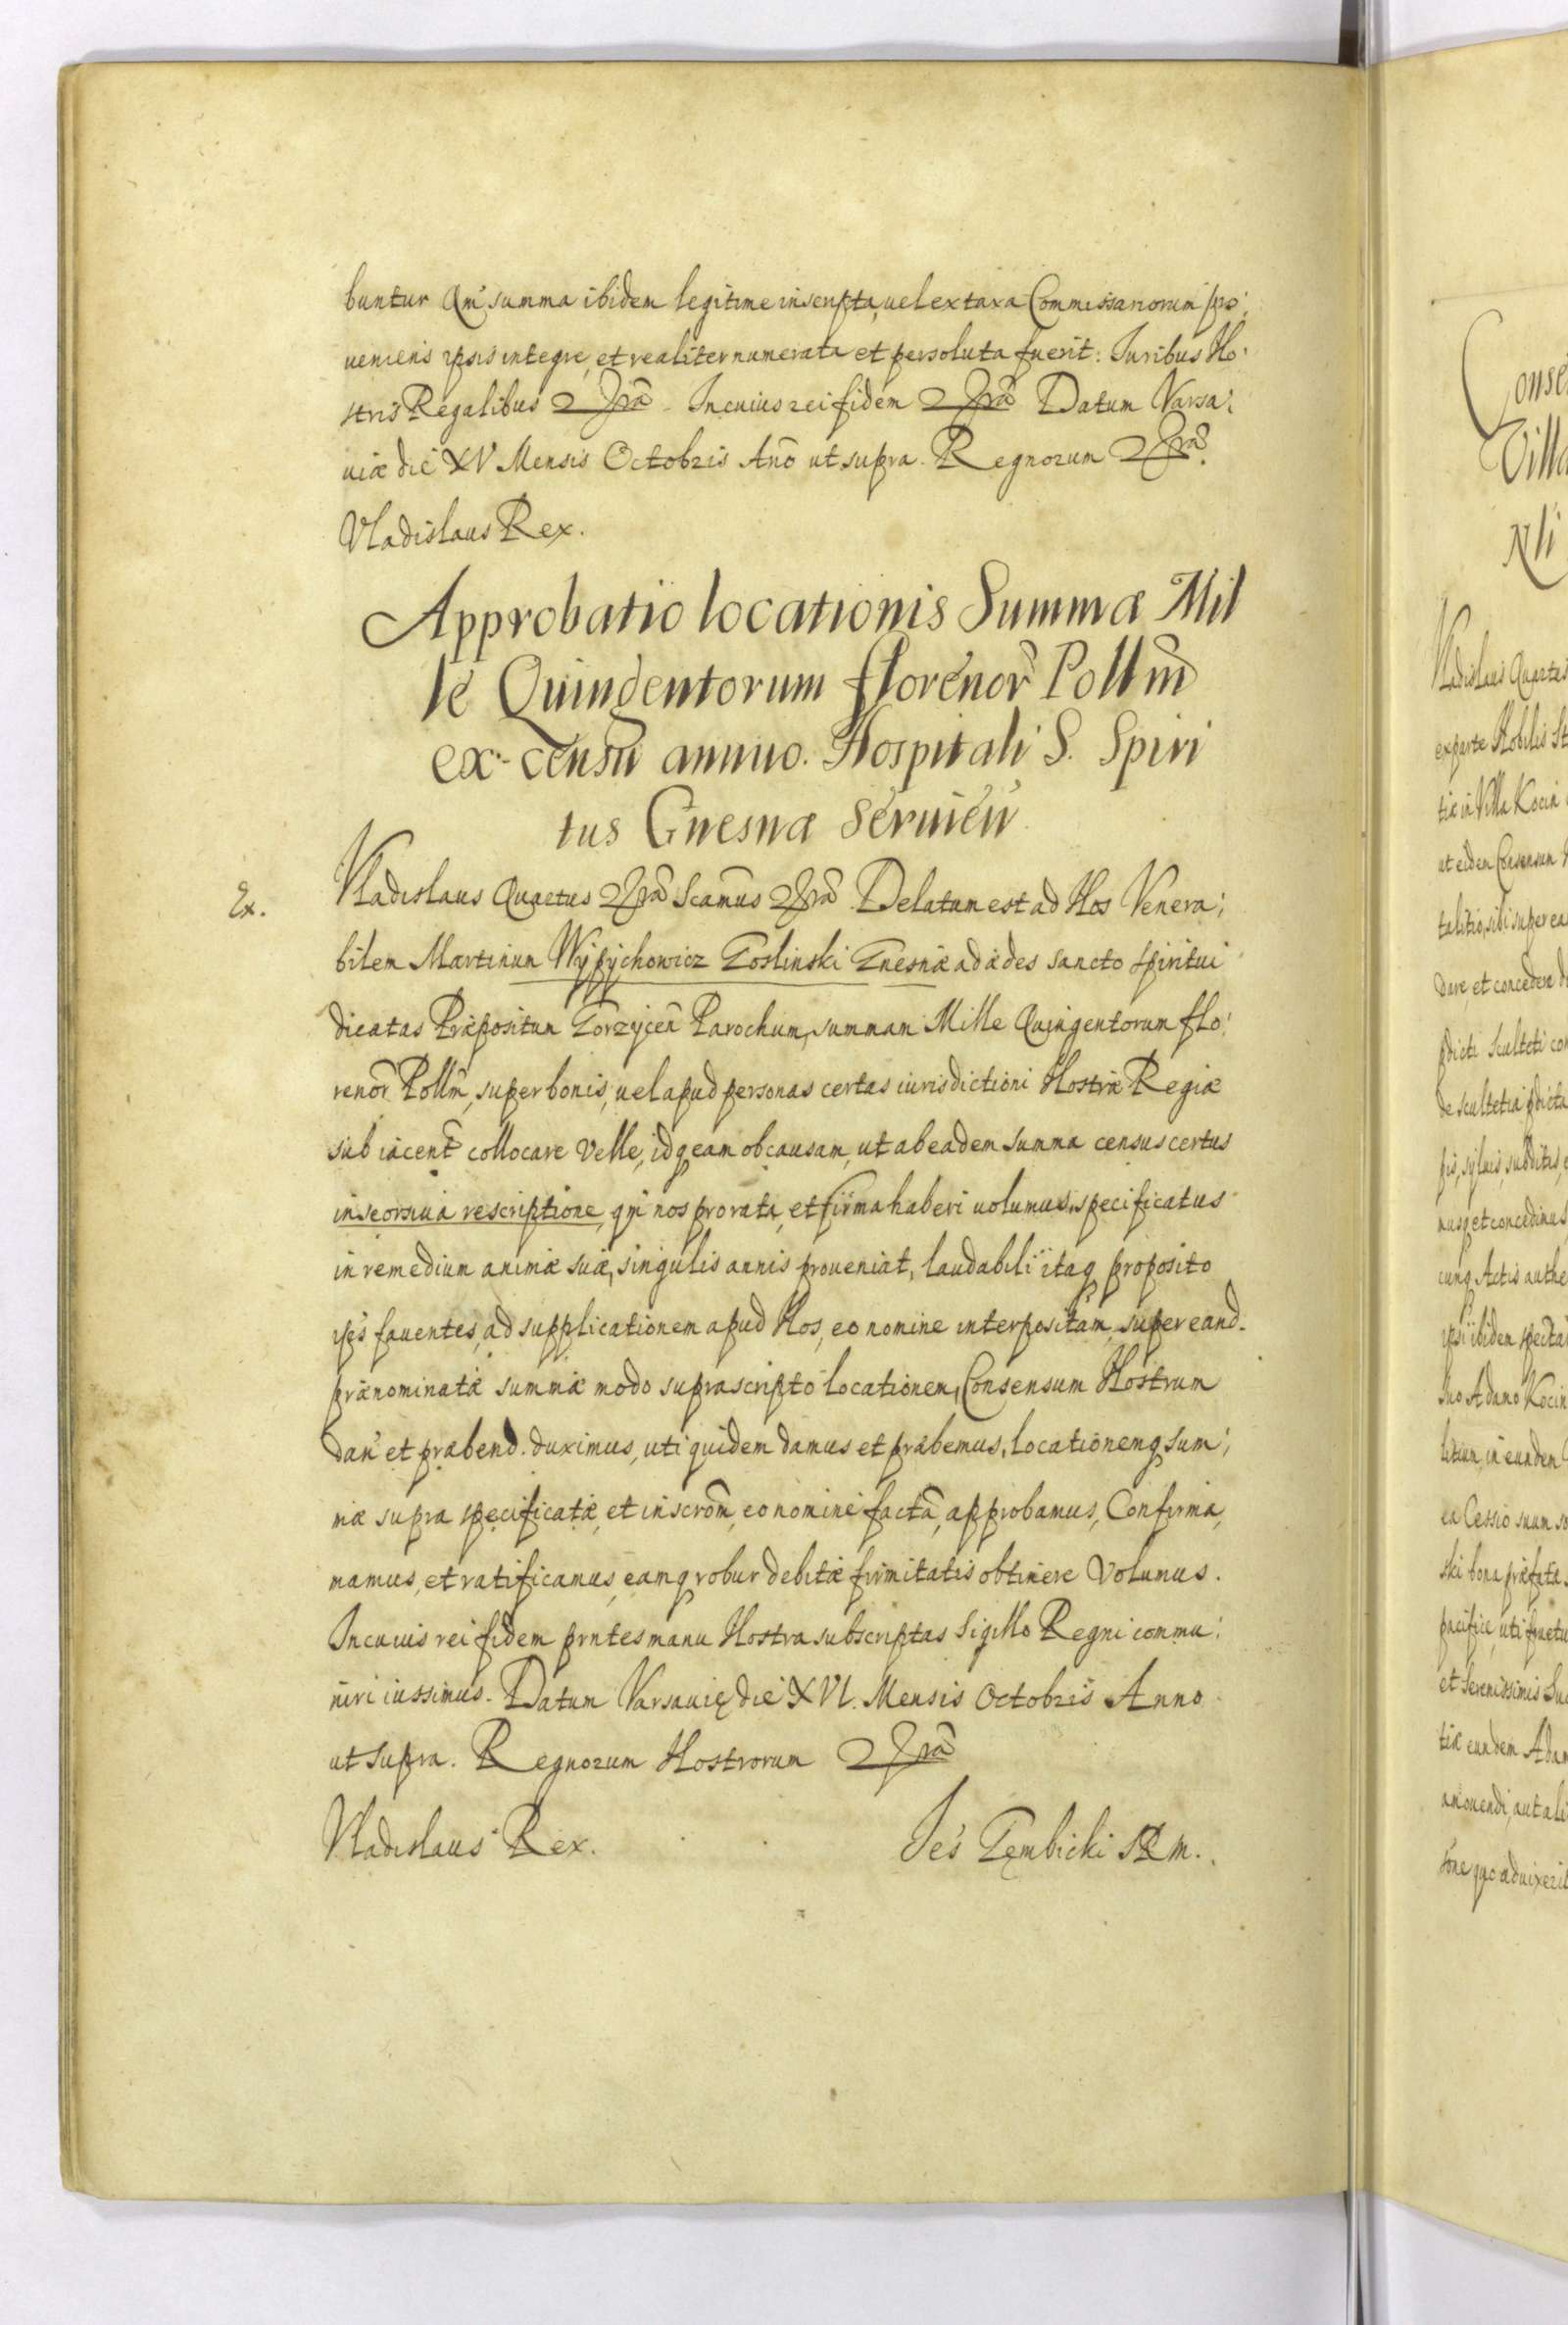 buntur Qm̃ summa ibidem legitime inscripta, uel ex taxa Commissariorum pro:
ueniens ipsis integre, et realiter numerata et persoluta fuerit: Iuribus No:
stris Regalibus In cuius rei fidem Datum Varsa:
uiæ die XV Mensis Octobris Anō ut supra. Regnorum
Vladislaus Rex.
Approbatio locationis Summæ Mil
le Quingentorum florenor̃ Pollm̃
ex censu annuo Hospitali S. Spiri
tus Gnesnæ seruien̄
Ex.
Vladislaus Quartus Scamus Delatum est ad Nos Venera:
bilem Martinum Wypychowicz Goslinski Gnesnæ ad ædes sancto spiritui
dicatas Præpositum Gorzycen̄ Parochum, summam Mille Quingentorum flo:
renor̃ Pollm̃, super bonis, uel apud personas certas iurisdictioni Nostræ Regiæ
sub iacent̃ collocare Velle, idq eam ob causam, ut ab eadem summa census certus
in seorsiua rescriptione, qm̃ nos pro rata, et firma haberi uolumus, specificatus
in remedium animæ suæ, singulis annis proueniat, laudabili itaq proposito
ips̃ fauentes, ad supplicationem apud Nos, eo nomine interpositam, super eand.
prænominatæ summæ modo suprascripto locationem, Consensum Nostrum
dan̄ et præbend. duximus, uti quidem damus et præbemus, locationemq sum:
mæ supra specificatæ, et inscrom̃, eo nomine factã, approbamus, Confirma,
mamus, et ratificamus, eamq robur debitæ firmitatis obtinere Volumus.
In cuius rei fidem prntes manu Nostra subscriptas Sigillo Regni commu:
niri iussimus. Datum Varsauię die XVI. Mensis Octobris Anno
ut supra. Regnorum Nostrorum
Vladislaus Rex. Ies Gęmbicki
Conse
Villa
Vladislaus Quartus
ex parte Nobilis
tiæ in Villa Kocin
ut eidem Consensum
talitio, sibi super ea
Dare et concedere
pdicti Sculteti
de scultetia pdicta
nusq et concedimus
cunq Actis authe
ipsi ibidem specta
Adamo Kocin
litium, in eundem
ea Cessio suum
ski bona præfata
pacifice, uti
et Serenissimis
tiæ eundem Adam
amouendi, aut ali